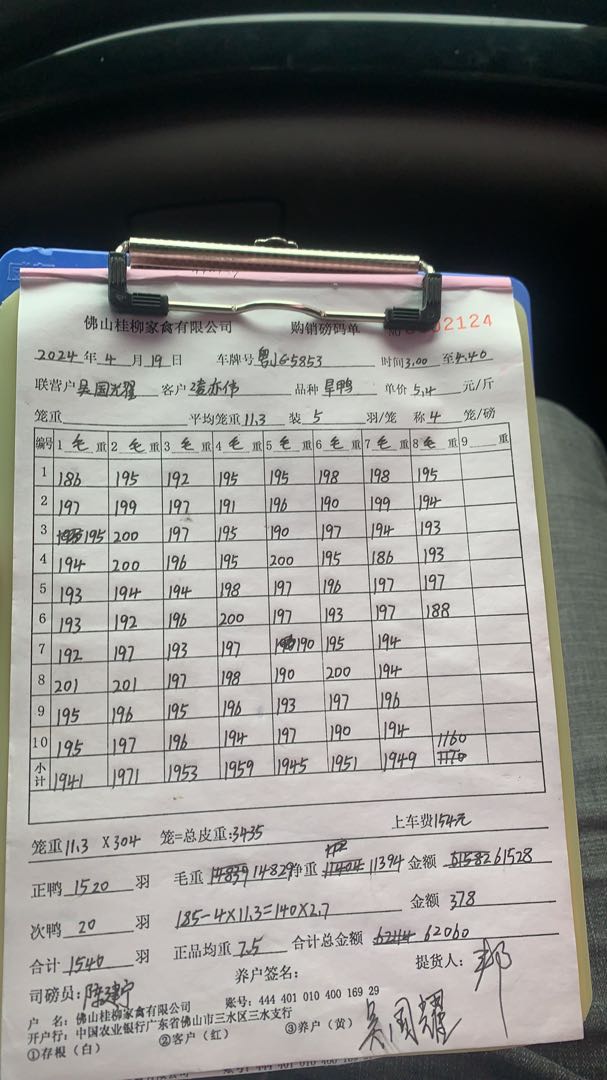 佛山桂柳家禽有限公司 购销磅码单 2124
2024年4月19日 车牌号粤JG5853 时间3.00至4.40
联营户吴国光耀 客户凌亦伟 品种旱鸭 单价5.4元/斤
笼重 平均笼重11.3 装5羽/笼 称4笼/磅
编号 1毛重 2毛重 3毛重 4毛重 5毛重 6毛重 7毛重 8毛重 9重
1 186 195 192 195 195 198 198 195
2 197 199 197 191 196 190 199 194
3 195 200 197 195 190 197 194 193
4 194 200 196 195 200 195 186 193
5 193 194 194 198 197 196 197 197
6 193 192 196 200 197 193 197 188
7 192 197 193 197 190 195 194
8 201 201 197 198 190 200 194
9 195 196 195 196 193 197 196
10 195 197 196 194 197 190 194
小计 1941 1971 1953 1959 1945 1951 1949 1170 1160
笼重11.3×304 笼=总皮重:3435 上车费154元
正鸭1520羽 毛重14839 14829净重11404 11394金额61582 61528
次鸭20羽 185-4×11.3=140×2.7 金额378
合计1540羽 正品均重7.5 合计总金额62114 62060
司磅员:陈建宁 养户签名: 提货人:邦
吴国耀
户 名:佛山桂柳家禽有限公司 账号:444 401 010 400 169 29
开户行:中国农业银行广东省佛山市三水区三水支行
①存根(白) ②客户(红) ③养户(黄)
账号:444 401 010 400 169